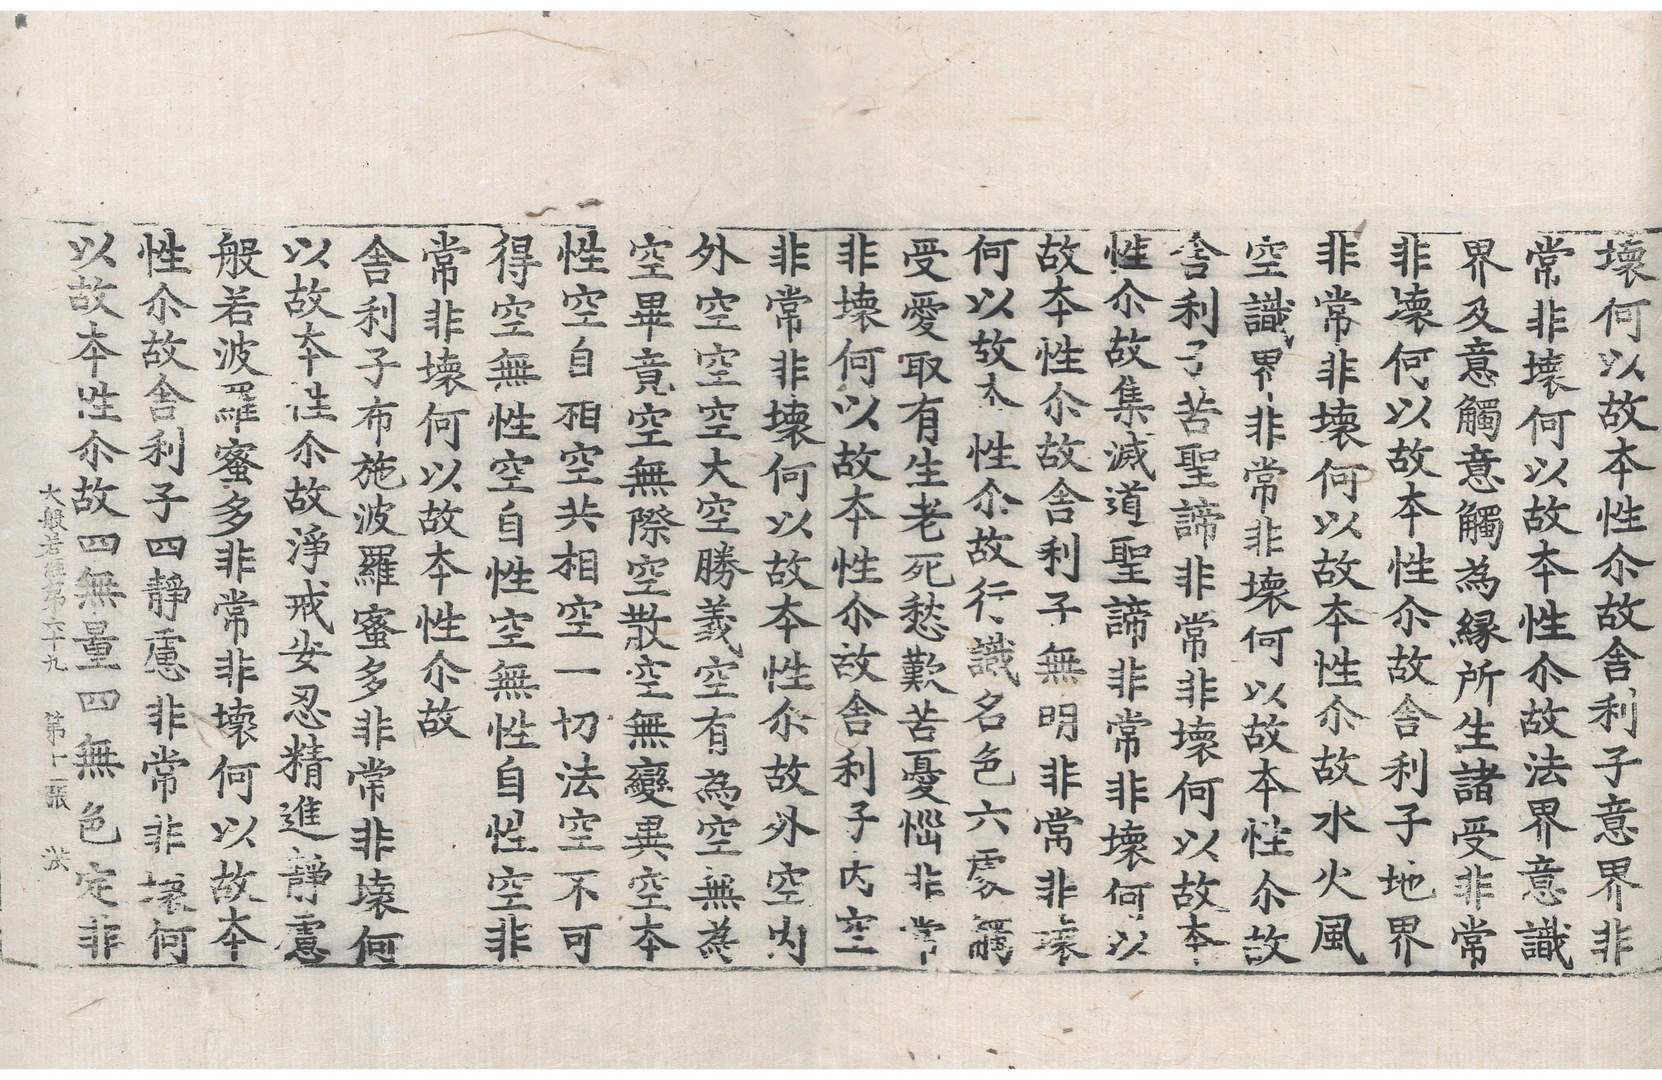 壞何以故本性尒故舎利子意界非
常非壞何以故本性尒故法界意識
界及意觸意觸為縁所生諸受非常
非壞何以故本性尒故舎利子地界
非常非壞何以故本性尒故水火風
空識界非常非壞何以故本性尒故
舎利子苦聖諦非常非壞何以故本
性尒故集滅道聖諦非常非壞何以
故本性尒故舎利子無明非常非壞
何以故本性尒故行識名色六處觸
受愛取有生老死愁歎苦憂惱非常
非壞何以故本性尒故舎利子内空
非常非壞何以故本性尒故外空内
外空空空大空勝義空有為空無為
空畢竟空無際空散空無變異空本
性空自相空共相空一切法空不可
得空無性空自性空無性自性空非
常非壞何以故本性尒故
舎利子布施波羅蜜多非常非壞何
以故本性尒故淨戒安忍精進靜慮
般若波羅蜜多非常非壞何以故本
性尒故舎利子四靜慮非常非壞何
以故本性尒故四無量四無色定非
大般若經第六十九 第十二張